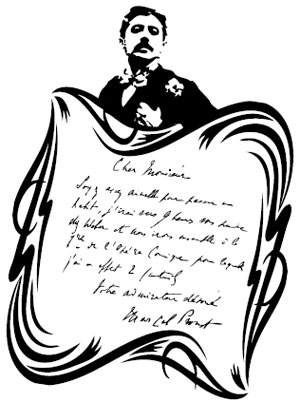 Cher Monsieur
Soyez assez aimable pour passer en
habit j'irai vers 9 heures vous prendre
chez Weber et nous irons ensemble à la
gale de l'Opéra Comique pour laquelle
j'ai en effet 2 fauteuils
Votre admirateur dévoué
Marcel Proust